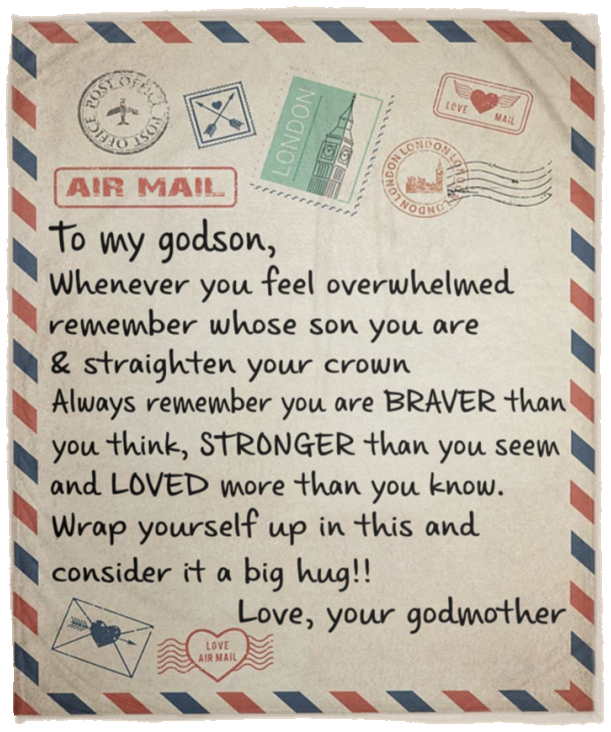 POST OFFICE POST OFFICE
LONDON
LOVE MAIL
LONDON LONDON LONDON LONDON
AIR MAIL
To my godson,
Whenever you feel overwhelmed
remember whose son you are
& straighten your crown
Always remember you are BRAVER than
you think, STRONGER than you seem
and LOVED more than you know.
Wrap yourself up in this and
consider it a big hug!!
Love, your godmother
LOVE
AIR MAIL